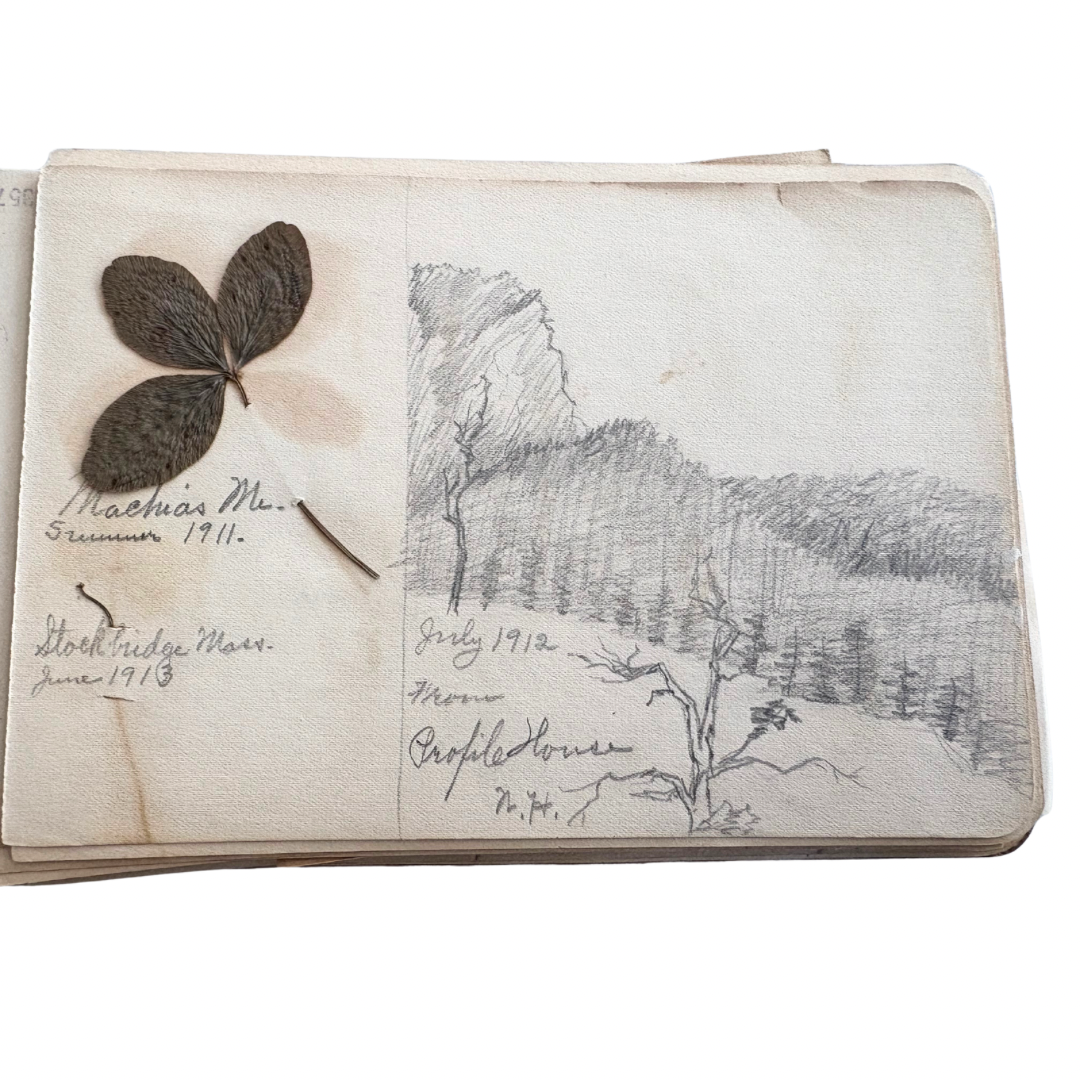 Machias Me.
Summer 1911.
Stockbridge Mass.
June 1913
July 1912
From
Profile House
N.H.